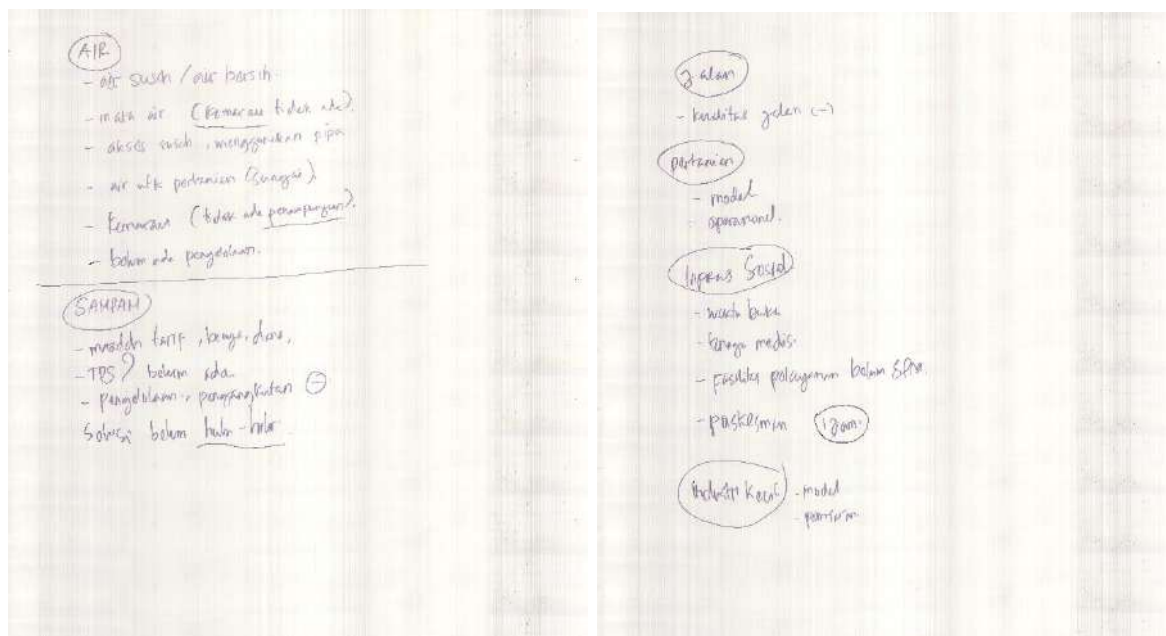 AIR
- air susah / air bersih.
- mata air (kemarau tidak ada).
- akses susah, menggunakan pipa
- air utk pertanian (sungai).
- kemarau (tidak ada penampungan).
- belum ada pengelolaan.
SAMPAH
- masalah tarif, biaya, dana,
- TPS? belum ada.
- pengelolaan, pengangkutan (-)
Solusi belum
Jalan
- kualitas jalan (-)
pertanian
- modal
- operasional.
Sosial
- waktu buka
- tenaga medis.
- fasilitas belum
- puskesmas 1 jam.
industri kecil - modal